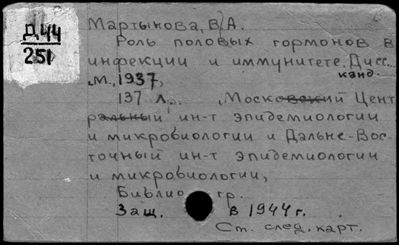 Д 44
251
Мартынова, В.А.
Роль половых гормонов в
инфекции и иммунитете. Дисс...
канд.
М., 1937,
137 л. , Московский Цент
ральный ин-т эпидемиологии
и микробиологии и Дальне-Вос-
точный ин-т эпидемиологии
и микробиологии,
Библиогр.
Защ. в 1944 г.
См. след. карт.